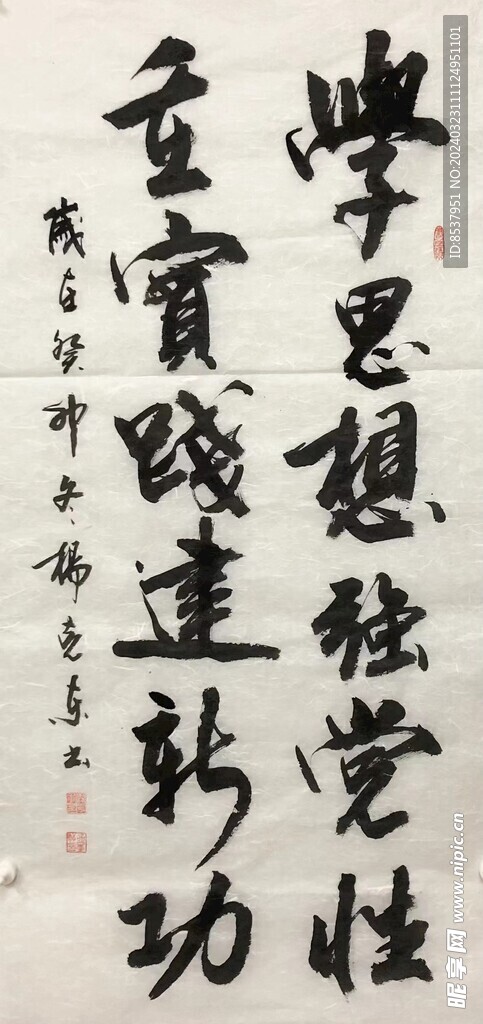 學思想强党性
重實踐建新功
歲在癸卯冬楊克東书
ID:8537951 NO:20240323111124951101
昵享网 www.nipic.cn